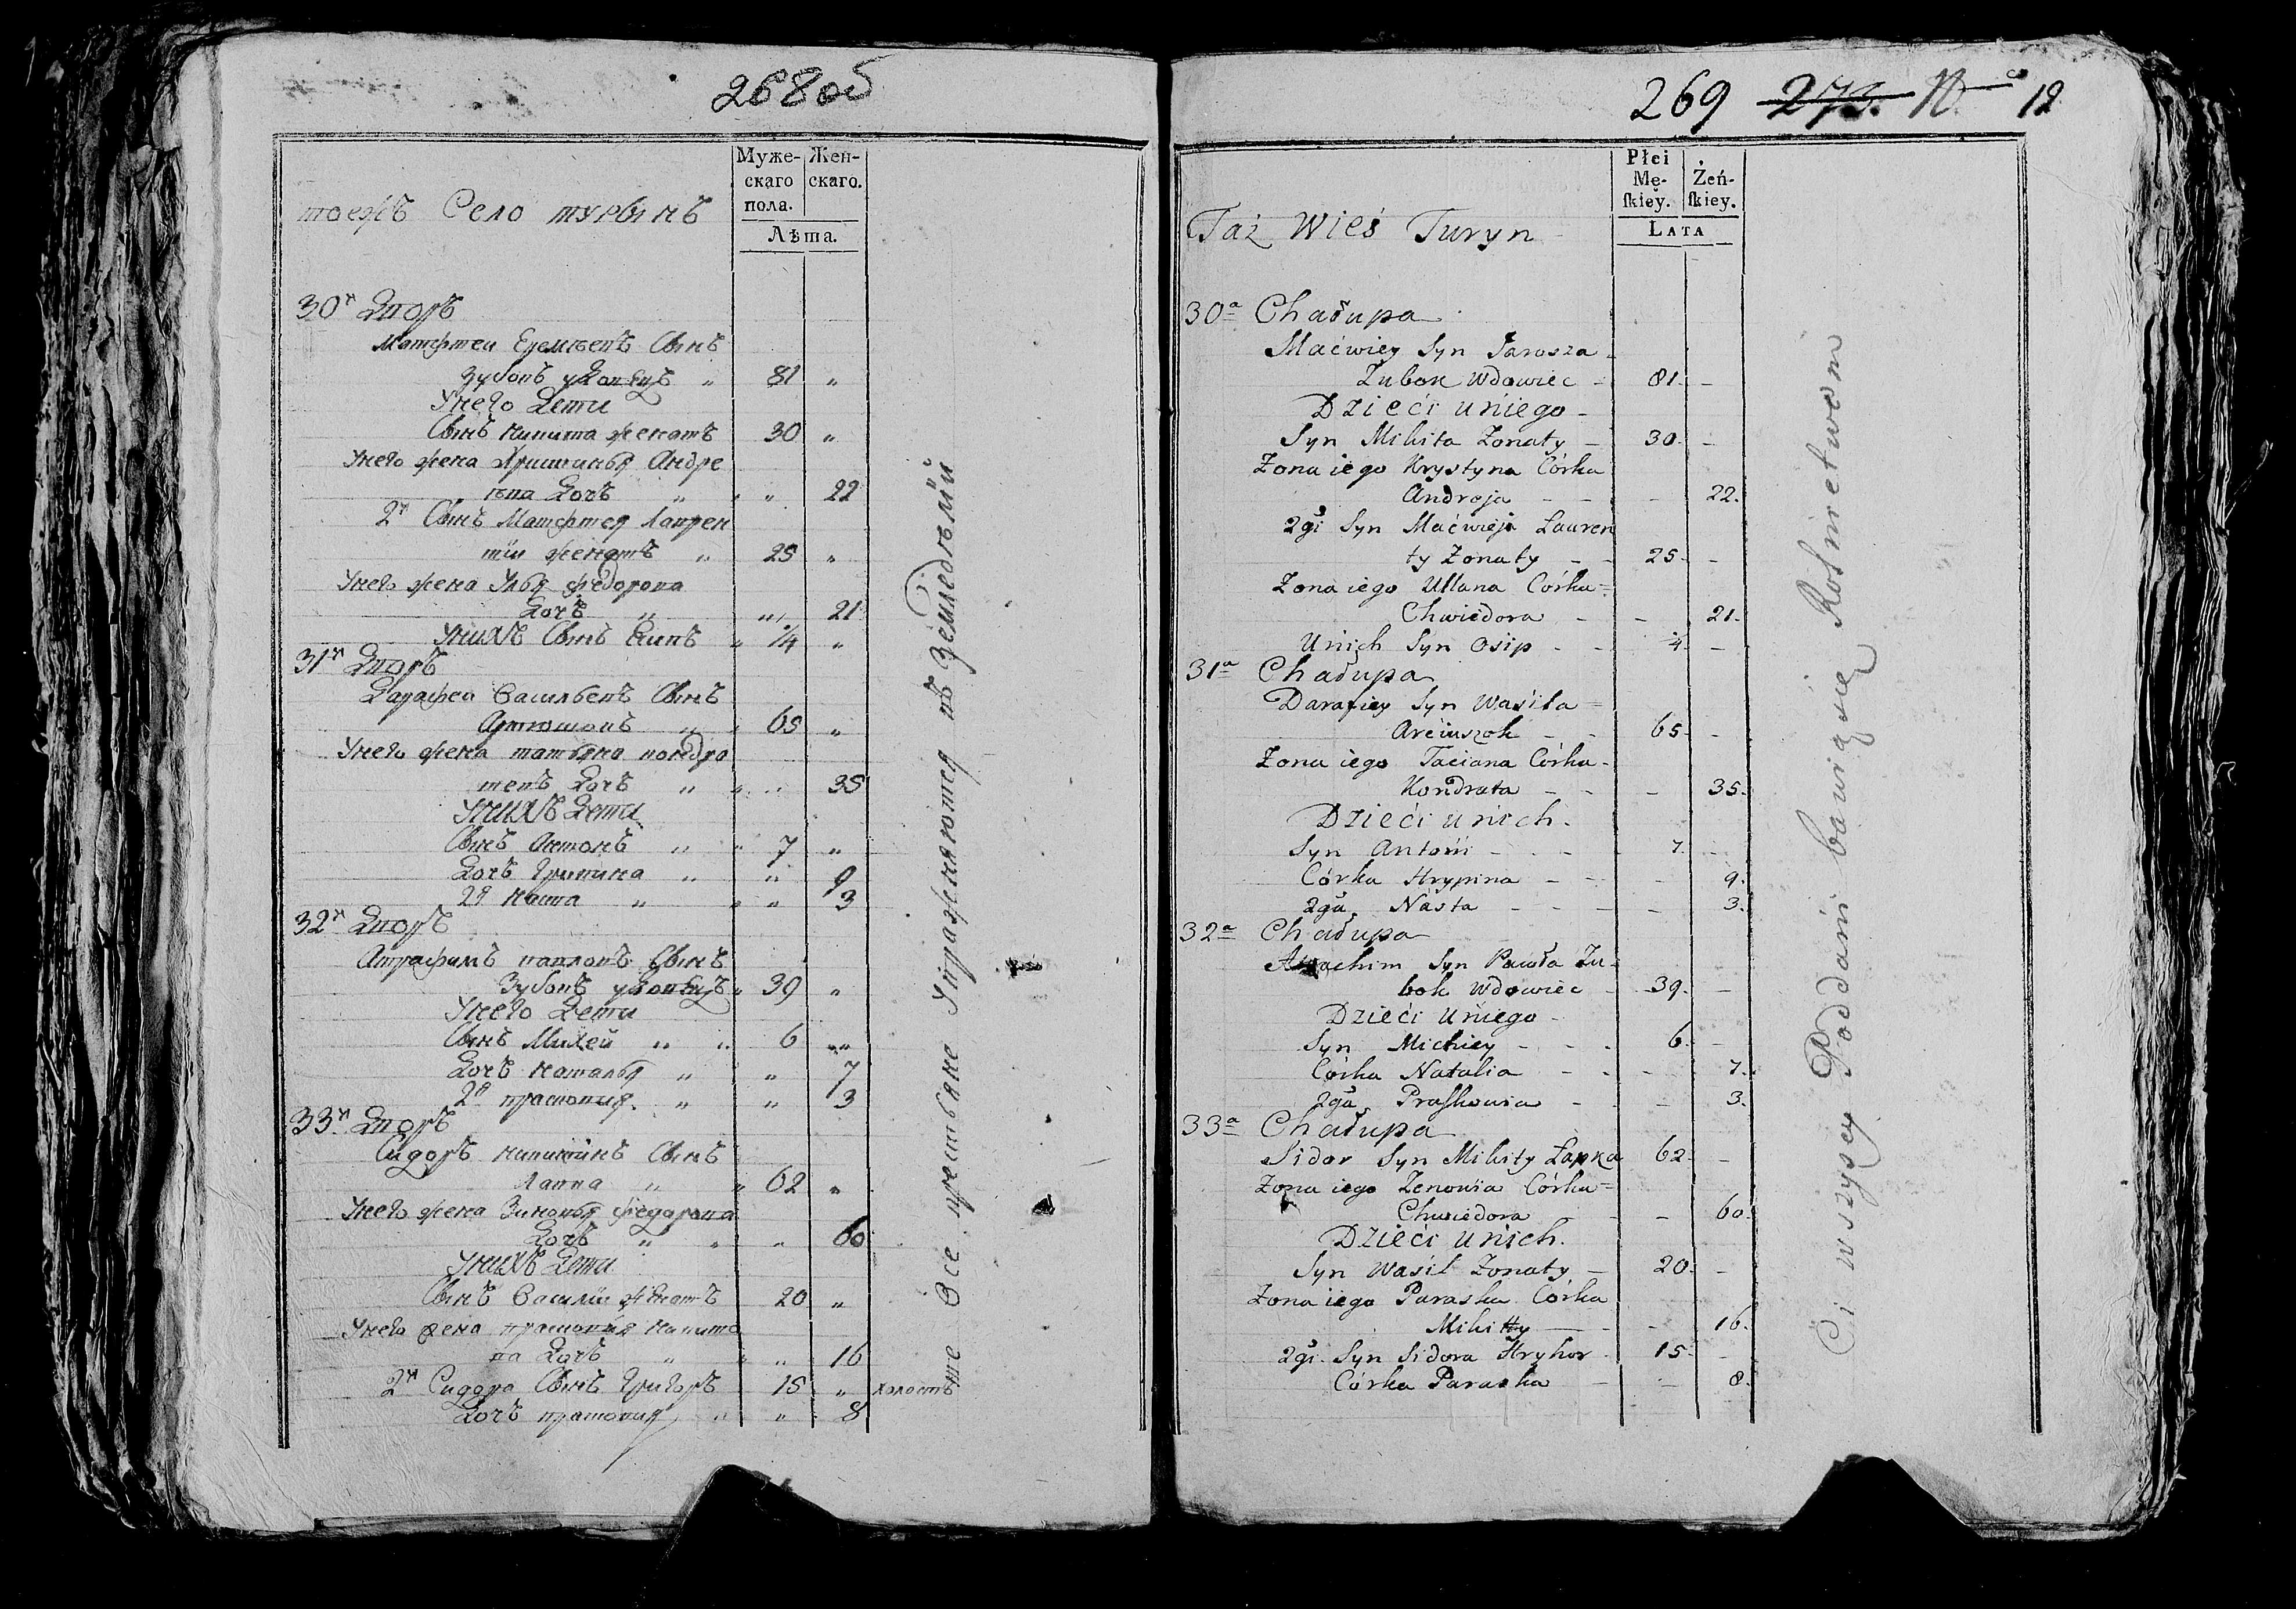 268 об
Муже-
скаго
пола.
Жен-
скаго.
Лѣта.
тоежъ Село турынъ
30й Дворъ
Матфей Еремѣевъ Сынъ
Зубокъ удовецъ " 81 "
Унего Дети
Сынъ Никита женатъ 30 "
Унего жена Христинья Андре
ева Дочъ " " " 22
2й Сынъ Матфея Лаврен
тій женатъ " 25 "
Унего жена Улья Федорова
Дочъ " " 21
Унихъ Сынъ Есипъ " 14 "
31й Дворъ
Дарафеи Васильевъ Сынъ
Артюшокъ " " 65 "
Унего жена татьяна кондра
тевъ Дочъ " " " 35
Унихъ Дети
Сынъ Антонъ " " 7 "
Дочъ Грипина " " 9
2я Наста " " " 3
32й Дворъ
Атрафимъ павловъ Сынъ
Зубокъ удовецъ " 39 "
Унего Дети
Сынъ Михей " " 6 "
Дочъ Наталья " " 7
2я прасковия " " 3
33й Дворъ
Сидоръ Никитинъ Сынъ
Лапка " " 62 "
Унего жена Зиновья Федарова
Дочъ " " " 60
Унихъ Дети
Сынъ Василій женатъ 20 "
Унего жена прасковия Никито
ва Дочъ " " " 16
2й Сидора Сынъ Григоръ 15 " холостъ
Дочъ прасковия " " 8
Все крестьяне Упражняются въ Земледѣліи
269 273. N 12
Płci
Mę-
ſkiey.
Żeń-
ſkiey.
LATA
Taż Wieś Turyn
30a Chałupa
Maćwiey Syn Jarosza
Zubok Wdowiec - 81. -
Dzieći uńiego -
Syn Mikita Żonaty - 30. -
Żona iego Krystyna Córka
Andreja - - - 22.
2gi Syn Maćwieja Lauren
ty Żonaty - - 25. -
Żona iego Ullana Córka =
Chwiedora - - 21.
Unich Syn Osip - - 4. -
31a Chałupa
Darafiey Syn Wasiła =
Arciuszok - - 65. -
Żona iego Taciana Córka -
Kondrata - - - 35.
Dzieći unich.
Syn Antoni - - - 7. -
Córka Hrypina - - - 9.
2ga Nasta - - - - 3.
32a Chałupa
Atrachim Syn Pawła Zu-
bok Wdowiec - 39. -
Dzieći uńiego -
Syn Michiey - - - 6. -
Córka Natalia - - - 7.
2ga Praſkowia - - 3.
33a Chałupa
Sidor Syn Mikity Łapka 62. -
Żona iego Zenowia Córka =
Chwiedora - - 60.
Dzieći unich.
Syn Wasil Żonaty - 20. -
Żona iego Paraska Córka
Mikitty - - 16.
2gi Syn Sidora Hryhor 15. -
Córka Paraska - - 8.
Ci wszyscy Poddani bawią się Rolnictwem